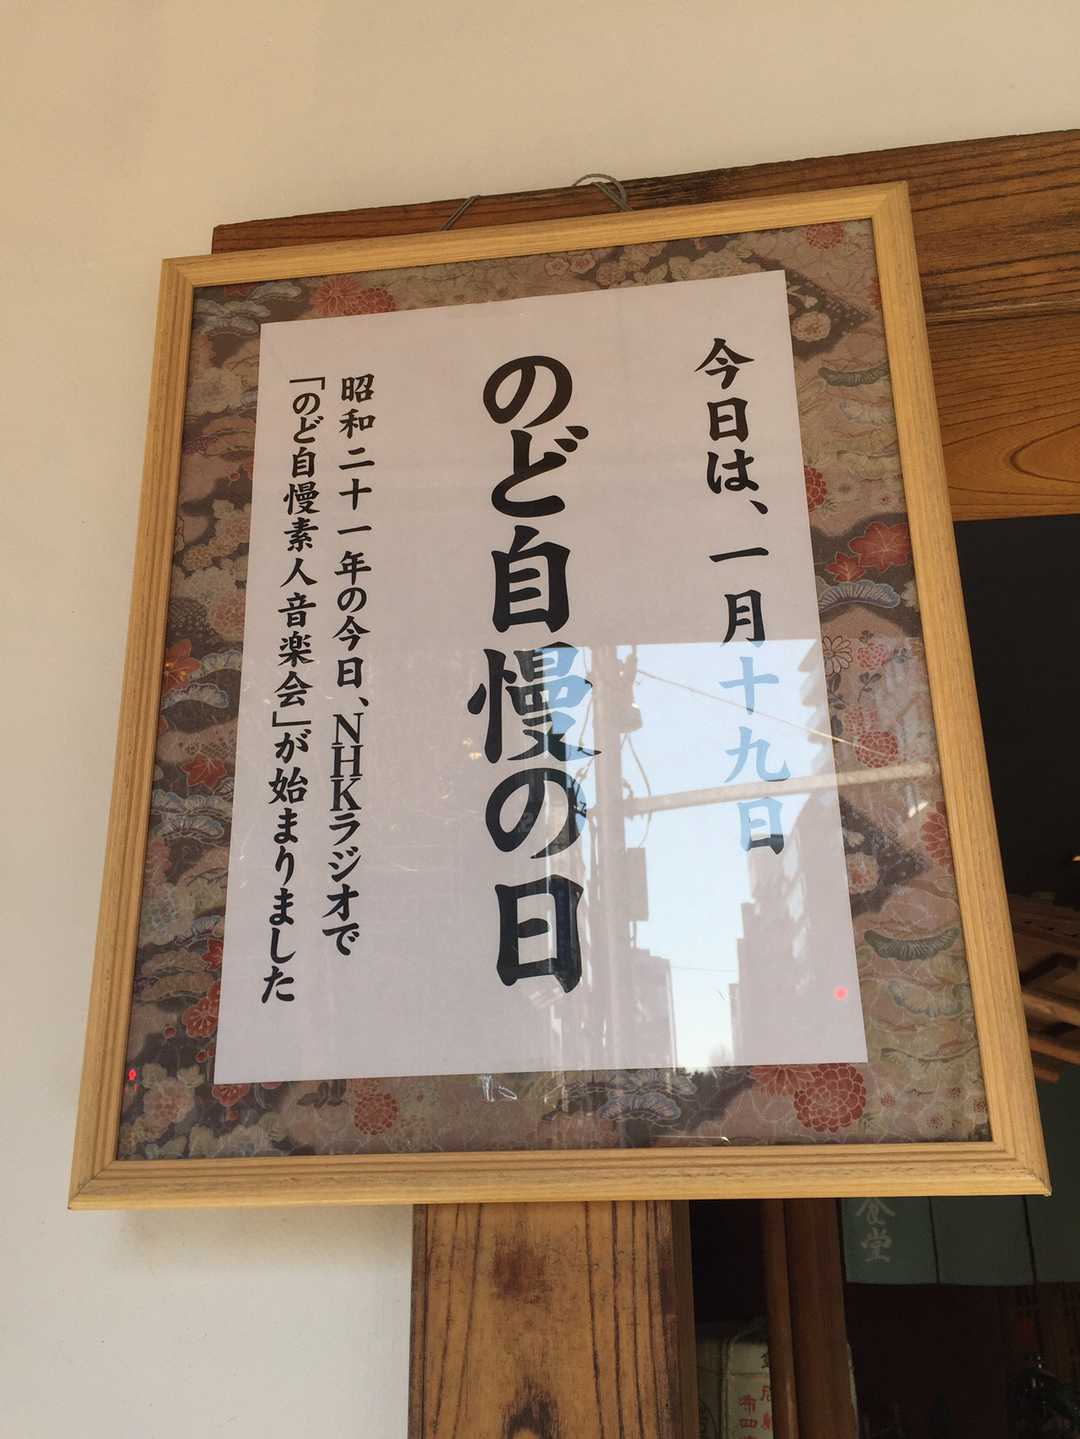 今日は、一月十九日
のど自慢の日
昭和二十一年の今日、NHKラジオで
「のど自慢素人音楽会」が始まりました
食堂